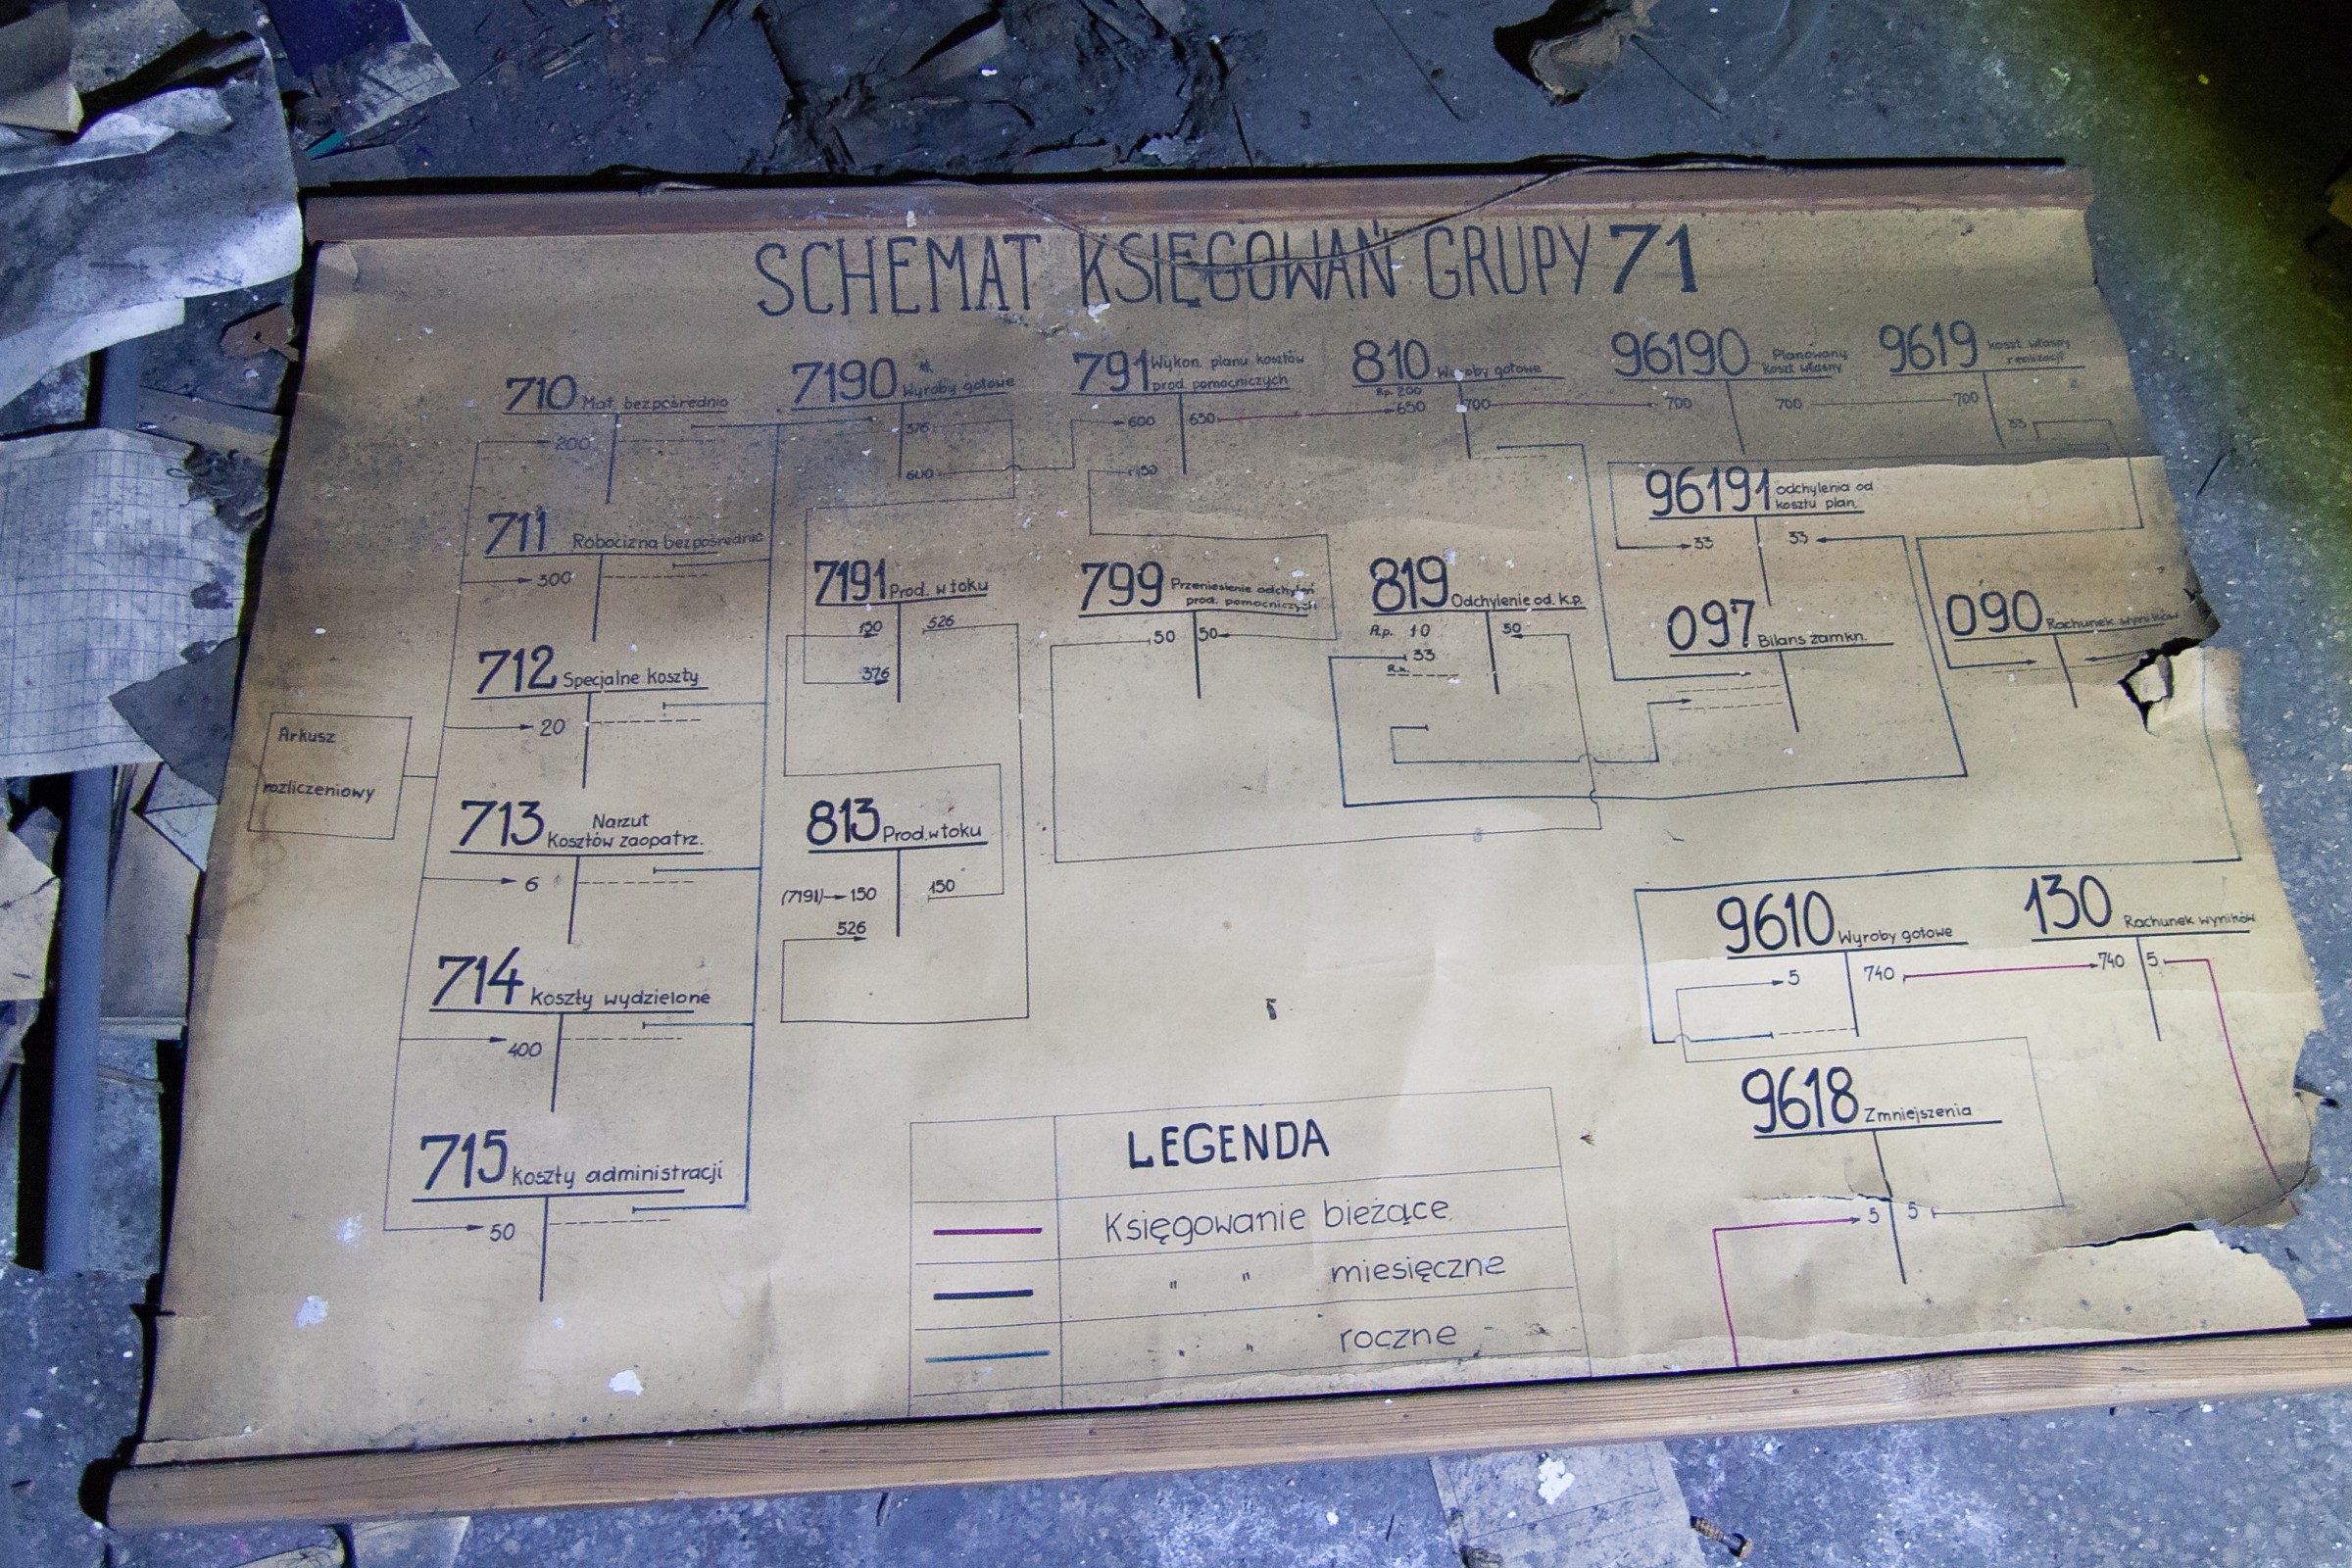 SCHEMAT KSIĘGOWAŃ GRUPY 71
710 Mat. bezpośrednio
200
7190 Wyroby gotowe
376
600
791 Wykon. planu kosztów
prod. pomocniczych
600 650
150
810 Wyroby gotowe
Rp. 200
650 700
96190 Planowany
koszt własny
700 700
9619 koszt własny
realizacji
700
33
96191 odchylenia od
kosztu plan.
33 33
711 Robocizna bezpośrednio
300
7191 Prod. w toku
150 526
376
799 Przeniesienie odchyleń
prod. pomocniczych
50 50
819 Odchylenie od. k.p.
R.p. 10 50
33
R.k.
097 Bilans zamkn.
090 Rachunek wyników
712 Specjalne koszty
20
Arkusz
rozliczeniowy
713 Narzut
Kosztów zaopatrz.
6
813 Prod. w toku
(7191) 150 150
526
714 koszty wydzielone
400
9610 Wyroby gotowe
5 740
130 Rachunek wyników
740 5
715 koszty administracji
50
9618 Zmniejszenia
5 5
LEGENDA
Księgowanie bieżące
" " miesięczne
" " roczne